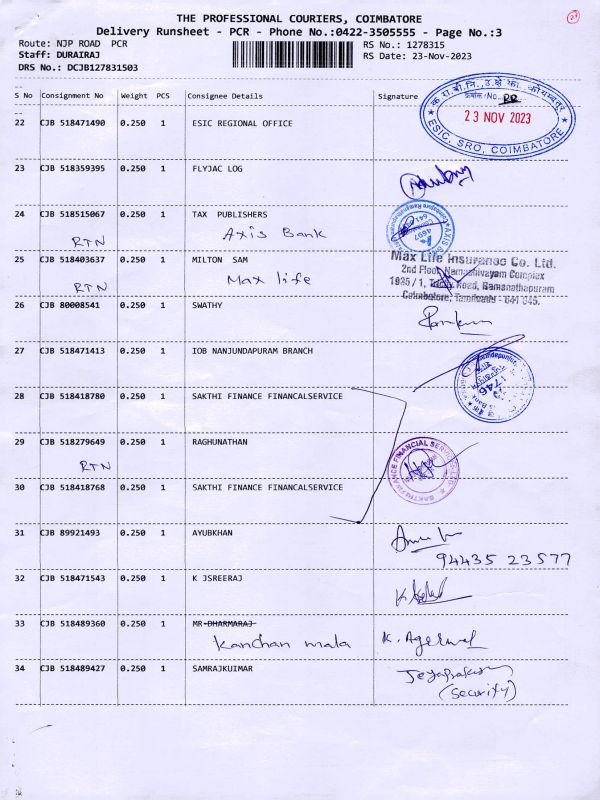 THE PROFESSIONAL COURIERS, COIMBATORE
Delivery Runsheet - PCR - Phone No.:0422-3505555 - Page No.:3
27
Route: NJP ROAD PCR
RS No.: 1278315
Staff: DURAIRAJ
RS Date: 23-Nov-2023
DRS No.: DCJB127831503
S No Consignment No Weight PCS Consignee Details Signature
23 NOV 2023
ESIC, SRO, COIMBATORE
22 CJB 518471490 0.250 1 ESIC REGIONAL OFFICE
23 CJB 518359395 0.250 1 FLYJAC LOG
24 CJB 518515067 0.250 1 TAX PUBLISHERS
RTN Axis Bank
25 CJB 518403637 0.250 1 MILTON SAM
RTN Max life
Max Life Insurance Co. Ltd.
2nd Floor, Namashivayam Complex
1935 / 1, Trichy Road, Ramanathapuram
Coimbatore, Tamilnadu - 641 045.
26 CJB 80008541 0.250 1 SWATHY
27 CJB 518471413 0.250 1 IOB NANJUNDAPURAM BRANCH
28 CJB 518418780 0.250 1 SAKTHI FINANCE FINANCALSERVICE
29 CJB 518279649 0.250 1 RAGHUNATHAN
RTN
SAKTHI FINANCE FINANCIAL SERVICES LTD
30 CJB 518418768 0.250 1 SAKTHI FINANCE FINANCALSERVICE
31 CJB 89921493 0.250 1 AYUBKHAN
94435 23577
32 CJB 518471543 0.250 1 K JSREERAJ
33 CJB 518489360 0.250 1 MR DHARMARAJ
Kanchan mala K. Agerwal
34 CJB 518489427 0.250 1 SAMRAJKUIMAR
(Security)